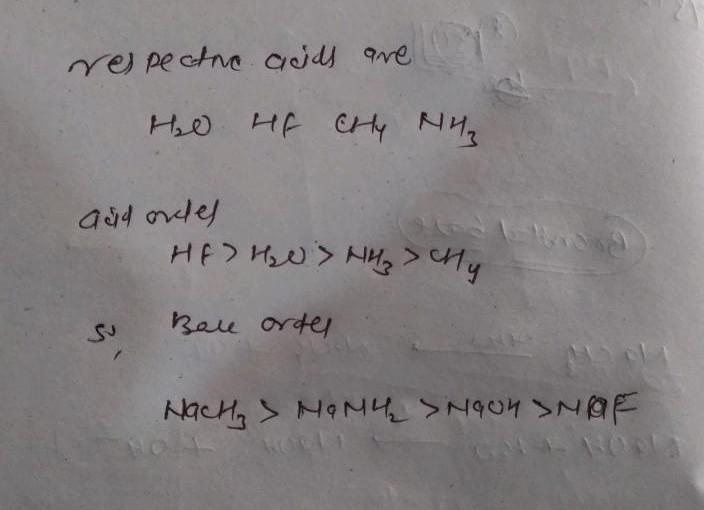 respective acids are
H₂O HF CH₄ NH₃
acid order
HF > H₂O > NH₃ > CH₄
so, Base order
NaCH₃ > NaNH₂ > NaOH > NaF